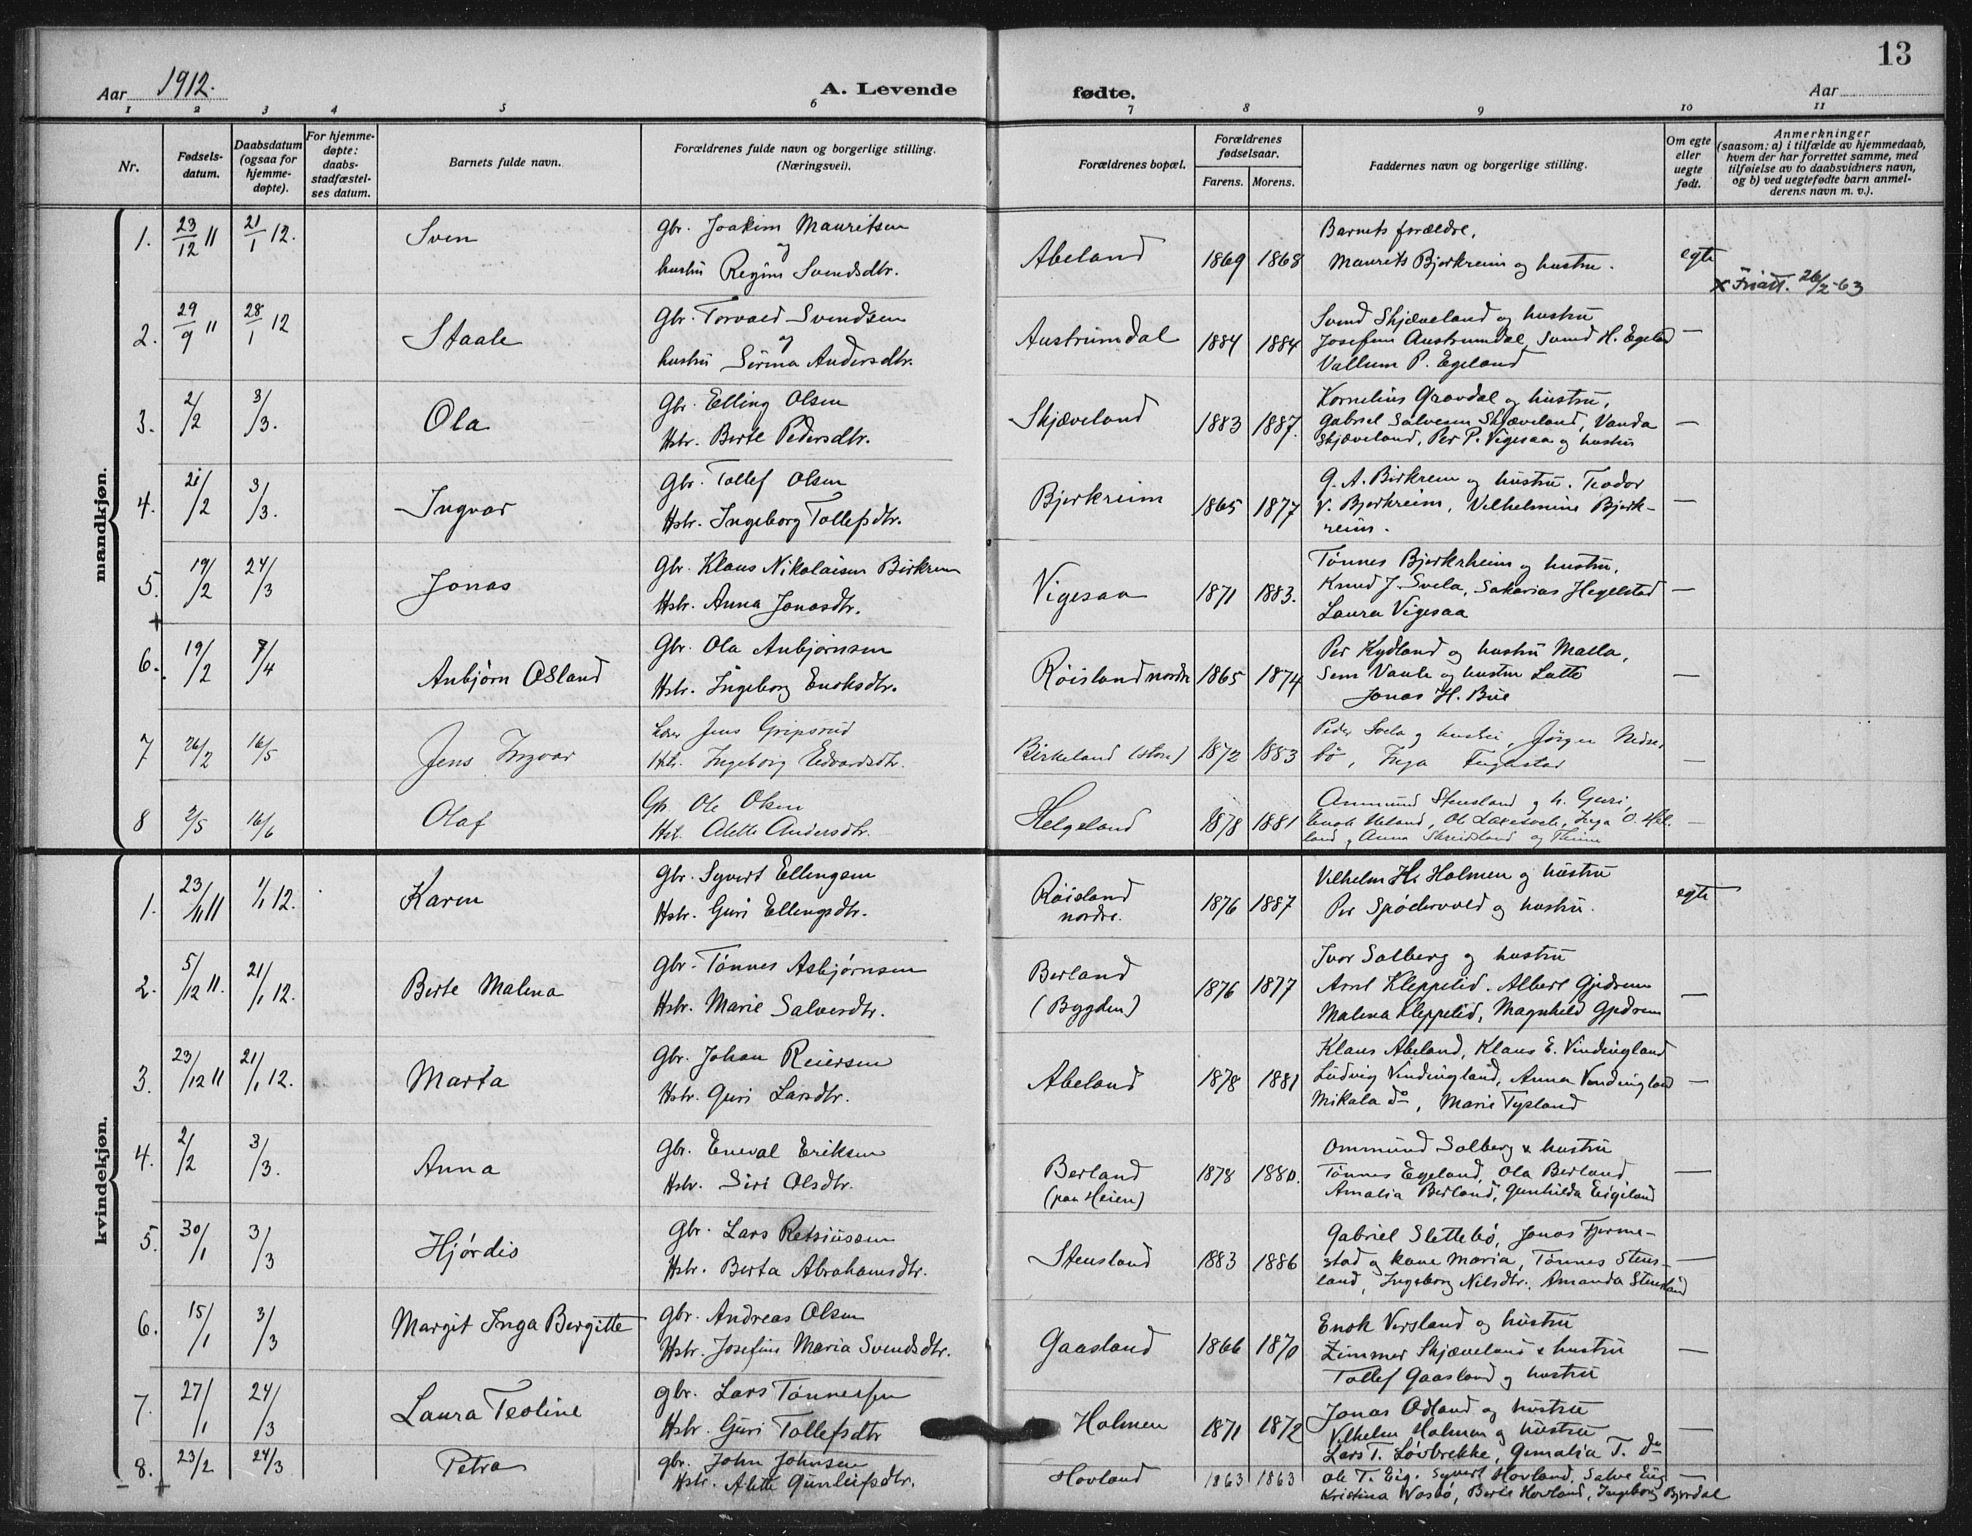 13
Aar 1912. A. Levende fødte. Aar
1 2 3 4 5 6 7 8 9 10 11
Nr. Fødsels-datum. Daabsdatum (ogsaa for hjemme-døpte). For hjemme-døpte: daabs-stadfæstel-ses datum. Barnets fulde navn. Forældrenes fulde navn og borgerlige stilling. (Næringsvei). Forældrenes bopæl. Forældrenes fødselsaar. Farens. Morens. Faddernes navn og borgerlige stilling. Om egte eller uegte født. Anmerkninger (saasom: a) i tilfælde av hjemmedaab, hvem der har forrettet samme, med tilføielse av to daabsvidners navn, og b) ved uegtefødte barn anmel-derens navn m. v.).
mandkjøn.
1. 23/12 11 21/1 12. Sven Gbr. Joakim Mauritsen og hustru Regine Svendsdtr. Abeland 1869 1868 Barnets forældre, Maurits Bjerkreim og hustru. egte
x 26/2-63
2. 29/9 11 28/1 12 Staale Gbr. Torvald Svendsen og hustru Sirina Andersdtr. Austrumdal 1884 1884 Svend Skjæveland og hustru Josefine Austrumdal, Svend H. Egelad Vallum P. Egeland —
3. 2/2 3/3. Ola Gbr. Elling Olsen Hstr. Berte Pedersdtr. Skjæveland 1883 1887. Kornelius Gravdal og hustru, Gabriel Salvesen Skjæveland, Vanda Skjæveland, Per P. Vigesaa og hustru —
4. 21/2 3/3. Ingvar Gbr. Tollef Olsen Hstr. Ingeborg Tollefsdtr. Bjerkreim 1865 1877 G. A. Birkrem og hustru. Teodor V. Bjerkreim, Vilhelmine Bjerk-reim. —
5. 19/2 24/3 Jonas Gbr. Klaus Nikolaisen Birkrem Hstr. Anna Jonasdtr. Vigesaa 1871 1883. Tønnes Bjerkrheim og hustru, Knud J. Svela, Sakarias Hegelstad Laura Vigesaa —
+
6. 19/2 7/4 Anbjørn Osland Gbr. Ola Anbjørnsen Hstr. Ingeborg Enoksdtr. Røisland nordre 1865 1874 Per Kydland og hustru Malla, Sem Vaule og hustru Lutte Jonas H. Bue —
7 26/2 16/5 Jens Ingvar Lærer Jens Gripsrud Hstr. Ingeborg Edvardsdtr. Birkeland (store) 1872 1883 Peder Svela og hustru, Jørgen Nedre-bø, Inga Fuglestad —
8 2/5 16/6 Olaf Gbr. Ole Olsen Hst. Alette Andersdtr. Helgeland 1878 1881 Ommund Stensland og h. Guri, Enok Ueland, Ole Laxesvele, Inga O. Hel-land, Anna Skridsland —
kvindekjøn.
1. 23/11 11 1/1 12. Karen Gbr. Syvert Ellingsen Hstr. Guri Ellingsdtr. Røisland nordre. 1876 1887 Vilhelm H. Holmen og hustru Per Spødervold og hustru. egte
2. 5/12 11. 21/1 12. Berte Malena Gbr. Tønnes Asbjørnsen Hstr. Marie Salvesdtr. Berland (Bygden) 1876 1877 Ivor Solberg og hustru Arnt Kleppelid. Albert Gjedrem Malena Kleppelid, Magnhild Gjedrem —
3. 23/12 11 21/1 12. Marta Gbr. Johan Reiersen Hstr. Guri Larsdtr. Abeland 1878 1881 Klaus Abeland, Klaus E. Vindingland Ludvig Vindingland, Anna Vindingland Mikala do, Marie Tysland —
4. 2/2 3/3. Anna Gbr. Eneval Eriksen Hstr. Siri Olsdtr. Berland (paa Heien) 1878 1880. Ommund Solberg & hustru Tønnes Egeland, Ola Berland, Amalia Berland, Gunhilda Eigeland —
5. 30/1 3/3 Hjørdis Gbr. Lars Retsiussen Hstr. Berta Abrahamsdtr. Stensland 1883 1886 Gabriel Slettebø, Jonas Fjerme-stad og kone Maria, Tønnes Stens-land, Ingeborg Nilsdtr. Amanda Stensland —
6. 15/1 3/3 Margit Inga Bergitte Gbr. Andreas Olsen Hstr. Josefine Maria Svendsdtr. Gaasland 1866 1870 Enok Versland og hustru Zimmer Skjæveland & hustru Tollef Gaasland og hustru —
7. 27/1 24/3 Laura Teoline gbr. Lars Tønnessen Hstr. Guri Tollefsdtr Holmen 1871 1872 Jonas Odland og hustru Vilhelm Holmen og hustru Lars T. Løvbrekke, Gemalia T. do —
8. 23/2 24/3 Petra gbr. John Johnsen Hstr. Alette Gunleifsdtr. Hovland 1863 1863 Ole T. Eig. Syvert Hovland, Salve Eig Kristina Vasbø, Berte Hovland, Ingeborg Bjordal —
– +